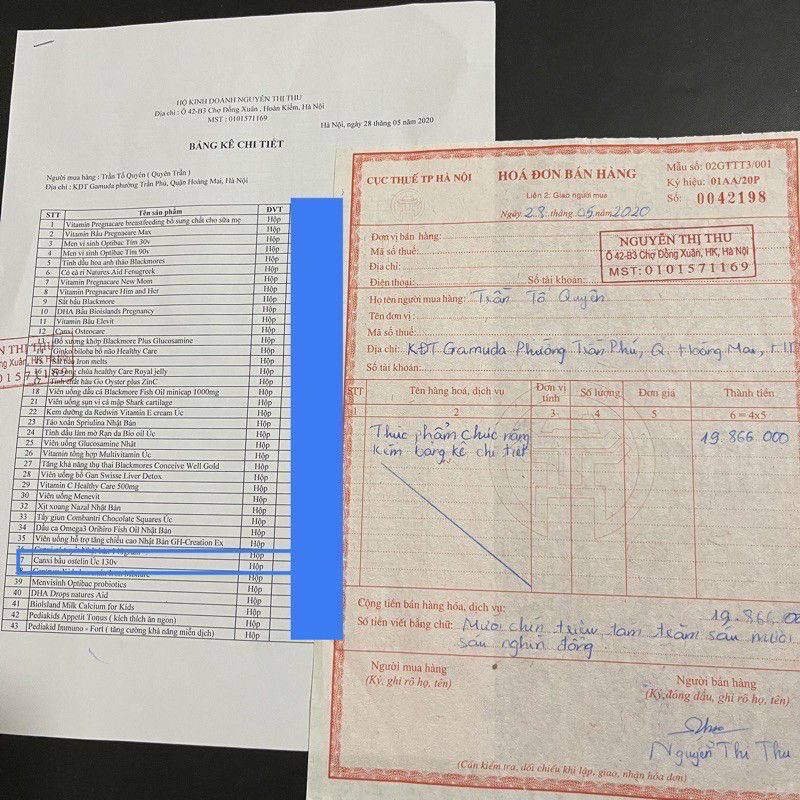 HỘ KINH DOANH NGUYỄN THỊ THU
Địa chỉ : Ô 42-B3 Chợ Đồng Xuân , Hoàn Kiếm, Hà Nội
MST : 0101571169
Hà Nội, ngày 28 tháng 05 năm 2020
BẢNG KÊ CHI TIẾT
Người mua hàng : Trần Tố Quyên ( Quyên Trần )
Địa chỉ : KĐT Gamuda phường Trần Phú, Quận Hoàng Mai, Hà Nội
STT Tên sản phẩm ĐVT
1 Vitamin Pregnacare breastfeeding bổ sung chất cho sữa mẹ Hộp
2 Vitamin Bầu Pregnacare Max Hộp
3 Men vi sinh Optibac Tím 30v Hộp
4 Men vi sinh Optibac Tím 90v Hộp
5 Tinh dầu hoa anh thảo Blackmores Hộp
6 Cỏ cà ri Natures Aid Fenugreek Hộp
7 Vitamin Pregnacare New Mom Hộp
8 Vitamin Pregnacare Him and Her Hộp
9 Sắt bầu Blackmore Hộp
10 DHA Bầu Bioislands Pregnancy Hộp
11 Vitamin Bầu Elevit Hộp
12 Canxi Osteocare Hộp
13 Bổ xương khớp Blackmore Plus Glucosamine Hộp
14 Ginko biloba bổ não Healthy Care Hộp
15 Sắt bầu Iron melts Hộp
16 Sữa ong chúa healthy Care Royal jelly Hộp
17 Tinh chất hàu Go Oyster plus ZinC Hộp
18 Viên uống dầu cá Blackmore Fish Oil minicap 1000mg Hộp
21 Viên uống sụn vi cá mập Shark cartilage Hộp
22 Kem dưỡng da Redwin Vitamin E cream Úc Hộp
23 Tảo xoắn Spriulina Nhật Bản Hộp
24 Tinh dầu làm mờ Rạn da Bio oil Úc Hộp
25 Viên uống Glucosamine Nhật Hộp
26 Vitamin tổng hợp Multivitamin Úc Hộp
27 Tăng khả năng thụ thai Blackmores Conceive Well Gold Hộp
28 Viên uống bổ Gan Swisse Liver Detox Hộp
29 Vitamin C Healthy Care 500mg Hộp
30 Viên uống Menevit Hộp
32 Xịt xoang Nazal Nhật Bản Hộp
33 Tẩy giun Combantri Chocolate Squares Úc Hộp
34 Dầu ca Omega3 Orihiro Fish Oil Nhật Bản Hộp
35 Viên uống hỗ trợ tăng chiều cao Nhật Bản GH-Creation Ex Hộp
Hộp
7 Canxi bầu ostelin Úc 130v Hộp
Hộp
39 Menvisinh Optibac probiotics Hộp
40 DHA Drops natures Aid Hộp
41 BioIsland Milk Calcium for Kids Hộp
42 Pediakids Appetit Tonus ( kích thích ăn ngon) Hộp
43 Pediakid Immuno - Fort ( tăng cường khả năng miễn dịch) Hộp
CỤC THUẾ TP HÀ NỘI
HOÁ ĐƠN BÁN HÀNG
Liên 2: Giao người mua
Ngày 28 tháng 05 năm 2020
Mẫu số: 02GTTT3/001
Ký hiệu: 01AA/20P
Số: 0042198
Đơn vị bán hàng:
Mã số thuế:
Địa chỉ:
Điện thoại: Số tài khoản:
NGUYỄN THỊ THU
Ô 42-B3 Chợ Đồng Xuân, HK, Hà Nội
MST: 0101571169
Họ tên người mua hàng: Trần Tố Quyên
Tên đơn vị:
Mã số thuế:
Địa chỉ: KĐT Gamuda Phường Trần Phú, Q. Hoàng Mai, HN
Số tài khoản:
STT Tên hàng hoá, dịch vụ Đơn vị tính Số lượng Đơn giá Thành tiền
1 2 3 4 5 6 = 4x5
Thực phẩm chức năng 19.866.000
Kèm bảng kê chi tiết
Cộng tiền bán hàng hóa, dịch vụ: 19.866.000
Số tiền viết bằng chữ: Mười chín triệu tám trăm sáu mươi
sáu nghìn đồng.
Người mua hàng
(Ký, ghi rõ họ, tên)
Người bán hàng
(Ký, đóng dấu, ghi rõ họ, tên)
Thu
Nguyễn Thị Thu
(Cần kiểm tra, đối chiếu khi lập, giao, nhận hóa đơn)